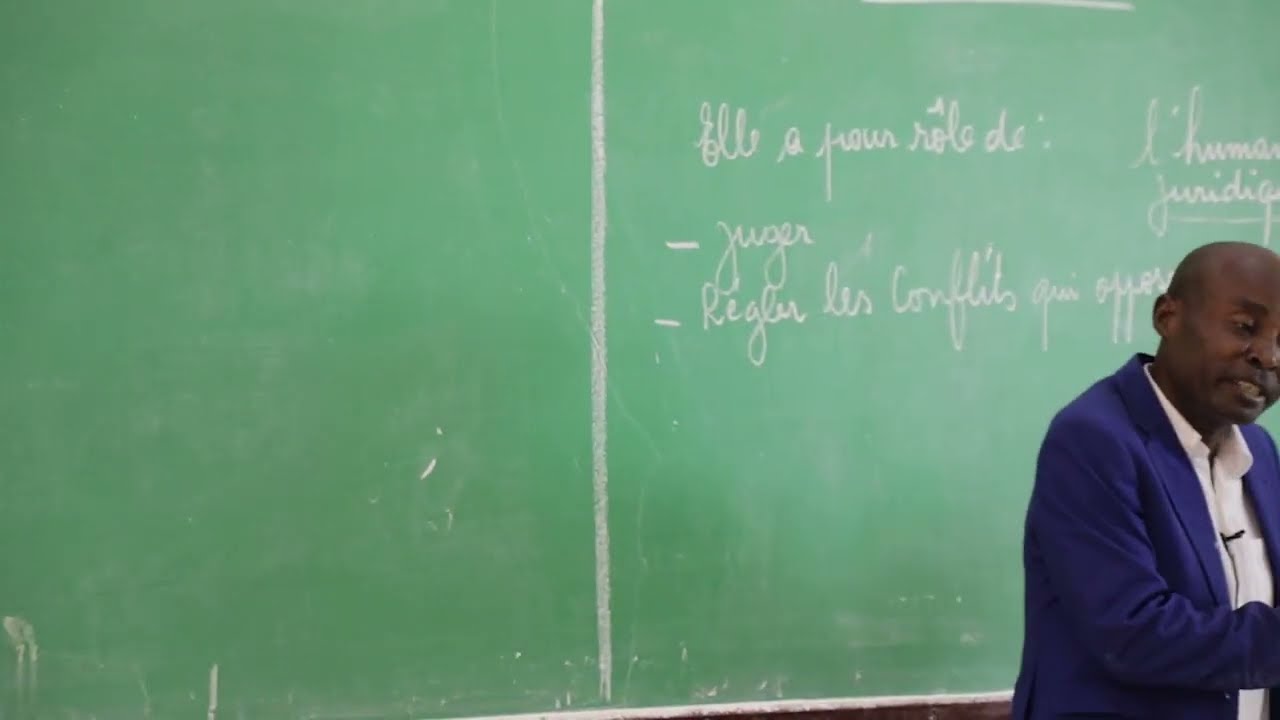 Elle a pour rôle de :
- juger
- Régler les Conflits qui oppose
l'human
juridiq